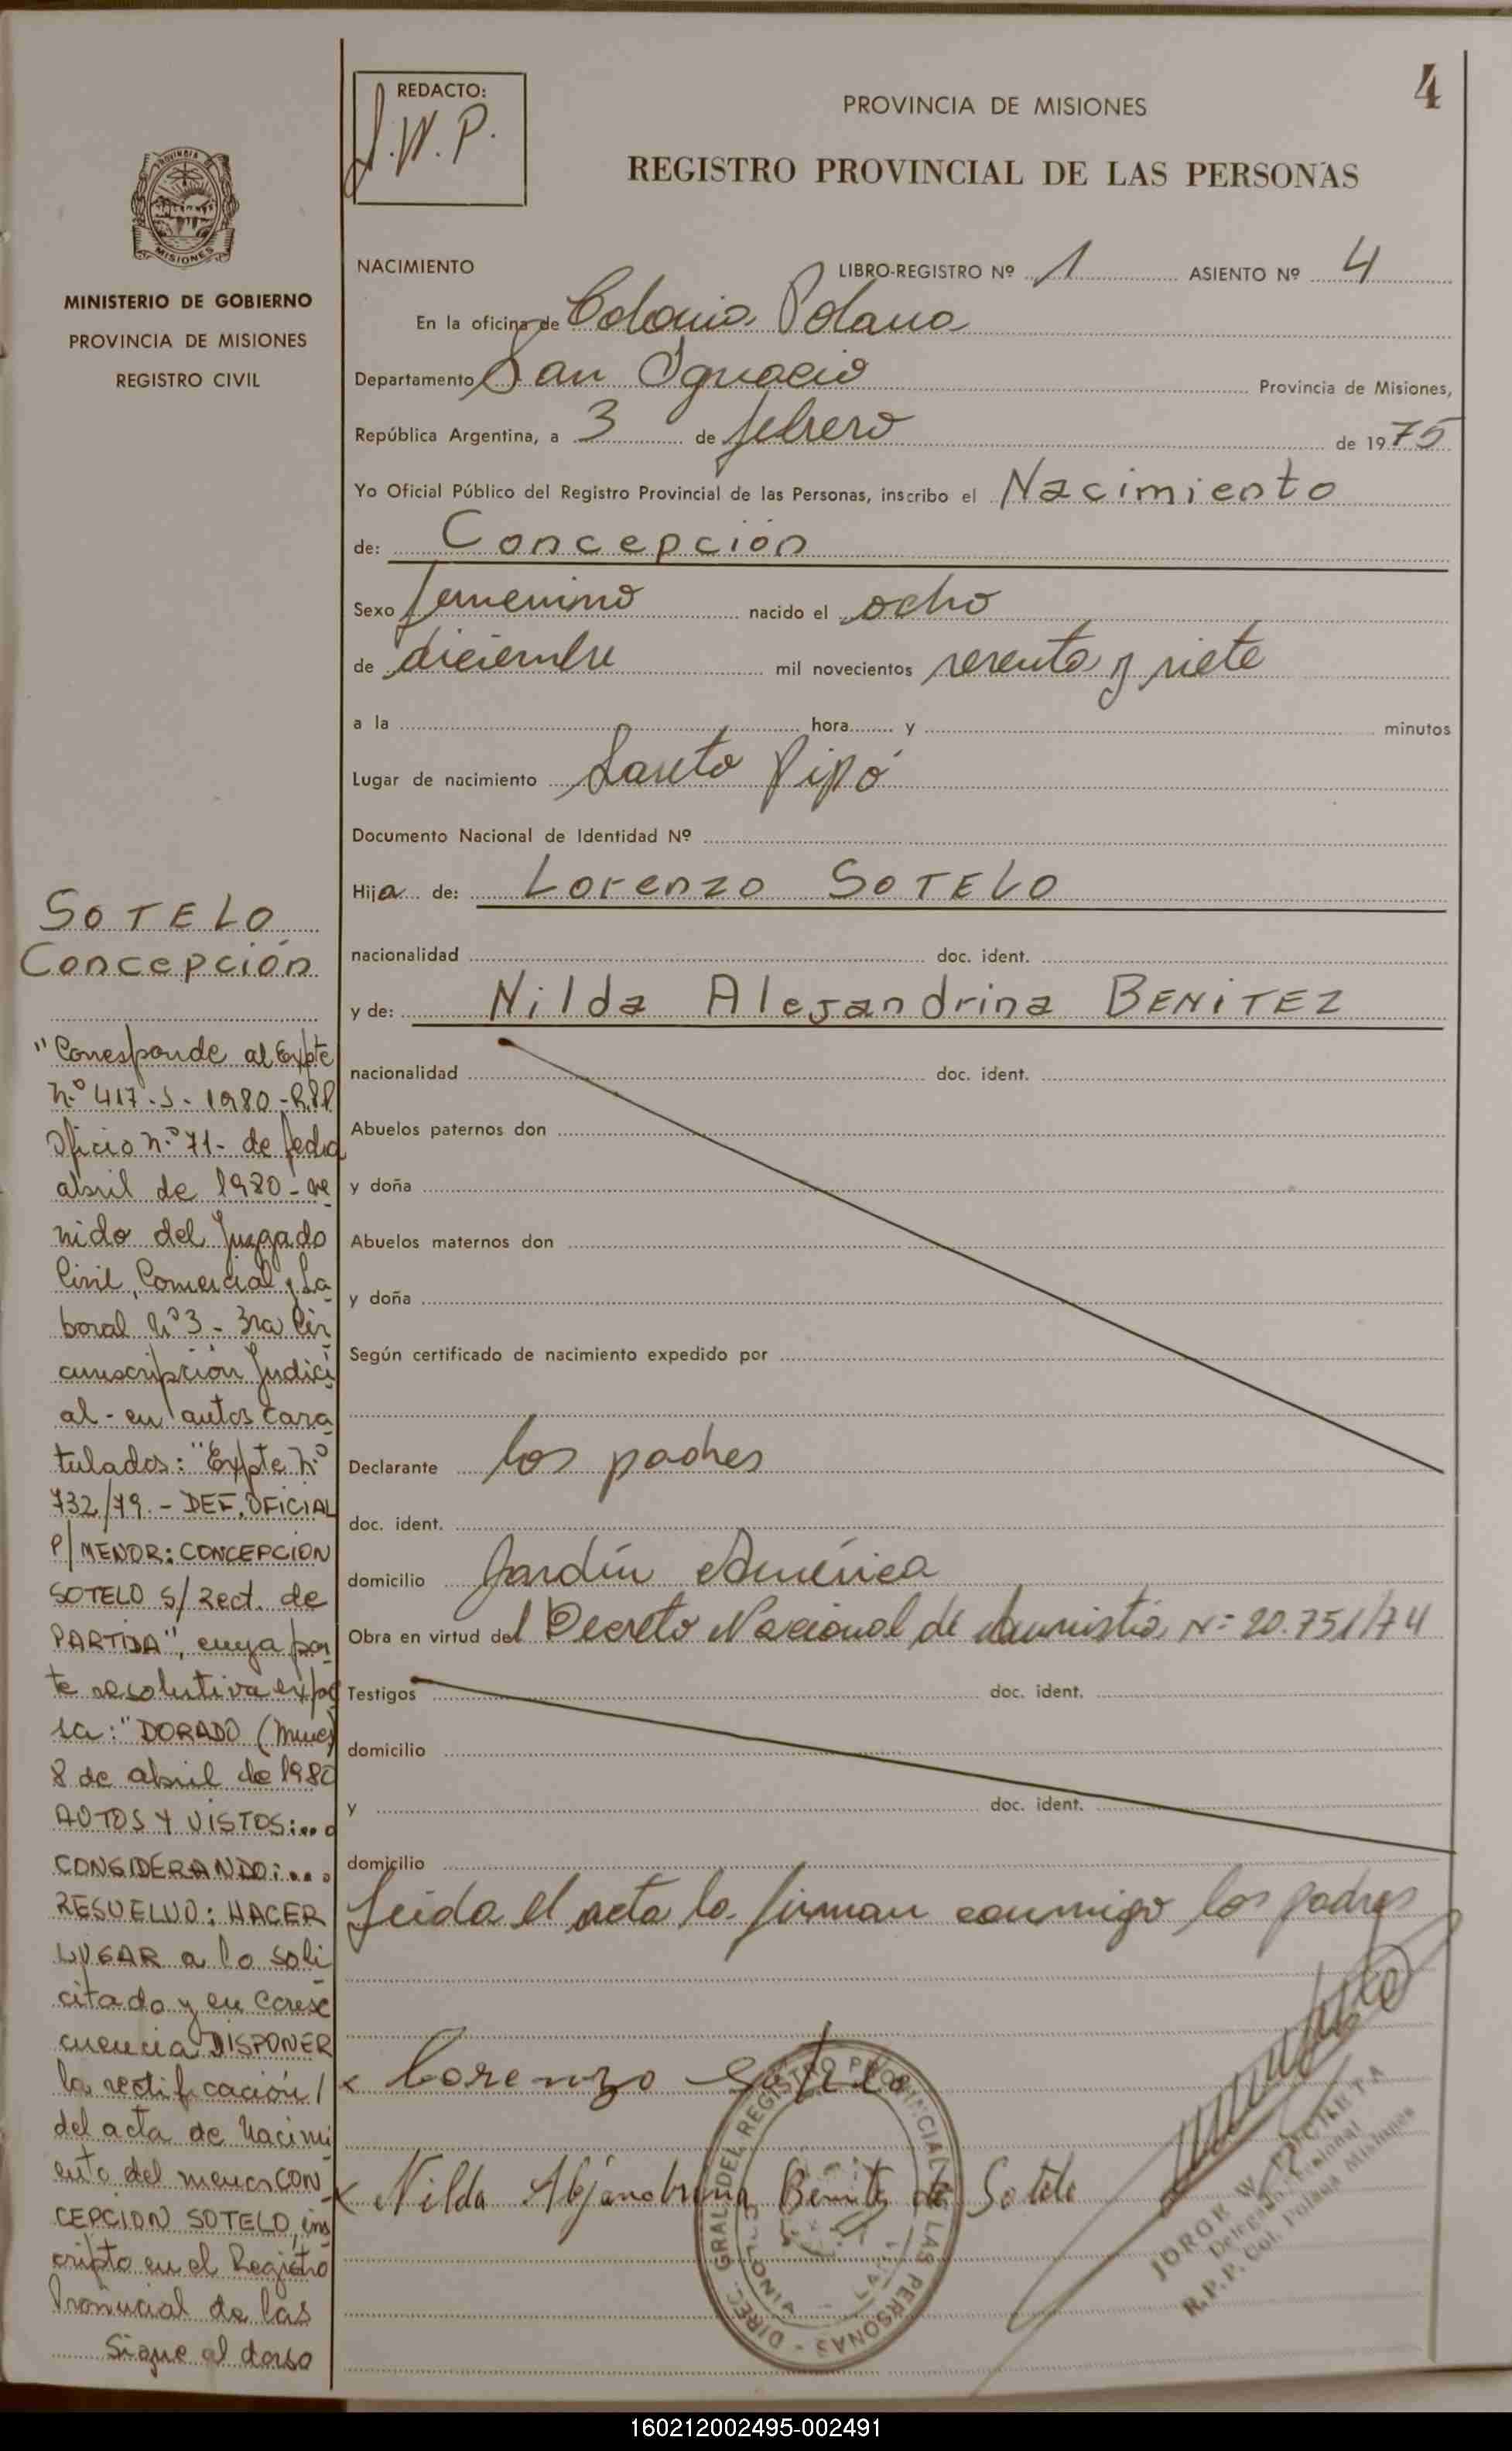 4
REDACTO:
J.W.P.
PROVINCIA DE MISIONES
REGISTRO PROVINCIAL DE LAS PERSONAS
PROVINCIA DE
MISIONES
MINISTERIO DE GOBIERNO
PROVINCIA DE MISIONES
REGISTRO CIVIL
NACIMIENTO LIBRO-REGISTRO Nº 1 ASIENTO Nº 4
En la oficina de Colonia Polana
Departamento San Ignacio Provincia de Misiones,
República Argentina, a 3 de febrero de 1975
Yo Oficial Público del Registro Provincial de las Personas, inscribo el Nacimiento
de: Concepción
Sexo femenino nacido el ocho
de diciembre mil novecientos sesenta y siete
a la hora y minutos
Lugar de nacimiento Santo Pipó
Documento Nacional de Identidad Nº
Hija de: Lorenzo SOTELO
nacionalidad doc. ident.
y de: Nilda Alejandrina BENITEZ
nacionalidad doc. ident.
Abuelos paternos don
y doña
Abuelos maternos don
y doña
Según certificado de nacimiento expedido por
Declarante los padres
doc. ident.
domicilio Jardín América
Obra en virtud del Decreto Nacional de Amnistía N= 20.751/74
Testigos doc. ident.
domicilio
y doc. ident.
domicilio
Leida el acta la firman conmigo los padres
x Lorenzo Sotelo
x Nilda Alejandrina Benitez de Sotelo
DIREC. GRAL. DEL REGISTRO PROVINCIAL DE LAS PERSONAS
JORGE W.
Delegado
R.P.P. Col. Polana Misiones
SOTELO
Concepción
"Corresponde al Expte
n.º 417-S-1980-R.P.P.
Oficio n.º 71- de fecha
abril de 1980- ve
nido del Juzgado
Civil, Comercial y La
boral Nº3 - 3ra Cir
cunscripción Judici
al- en autos cara
tulados: "Expte Nº
732/79.- DEF. OFICIAL
P/MENOR: CONCEPCION
SOTELO S/Rect. de
PARTIDA", cuya par
te resolutiva expre
sa: "DORADO (Mnes)
8 de abril de 1980
AUTOS Y VISTOS:...
CONSIDERANDO:...
RESUELVO: HACER
LUGAR a lo soli
citado y en conse
cuencia DISPONER
la rectificación /
del acta de Nacimi
ento del menor CON
CEPCION SOTELO, ins
cripto en el Registro
Provincial de las
Sigue al dorso
160212002495-002491